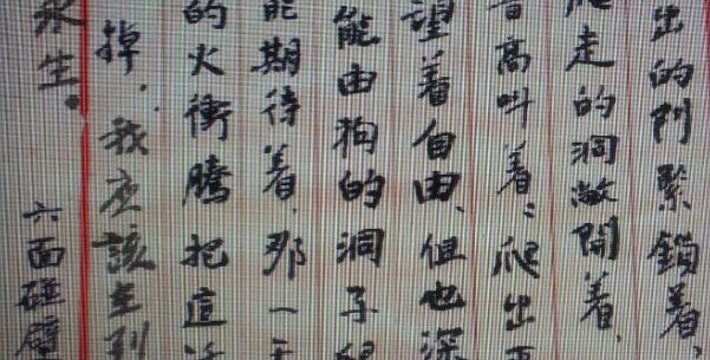 出的門緊鎖着,
走的洞敞開着,
高叫着：爬出
望着自由、但也深
能由狗的洞子
期待着,那一
的火衝騰把這
掉,我应該
永生。
六面碰壁